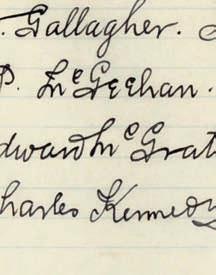 . Gallagher.
P. McGeehan.
dward McGrat
harles Kennedy